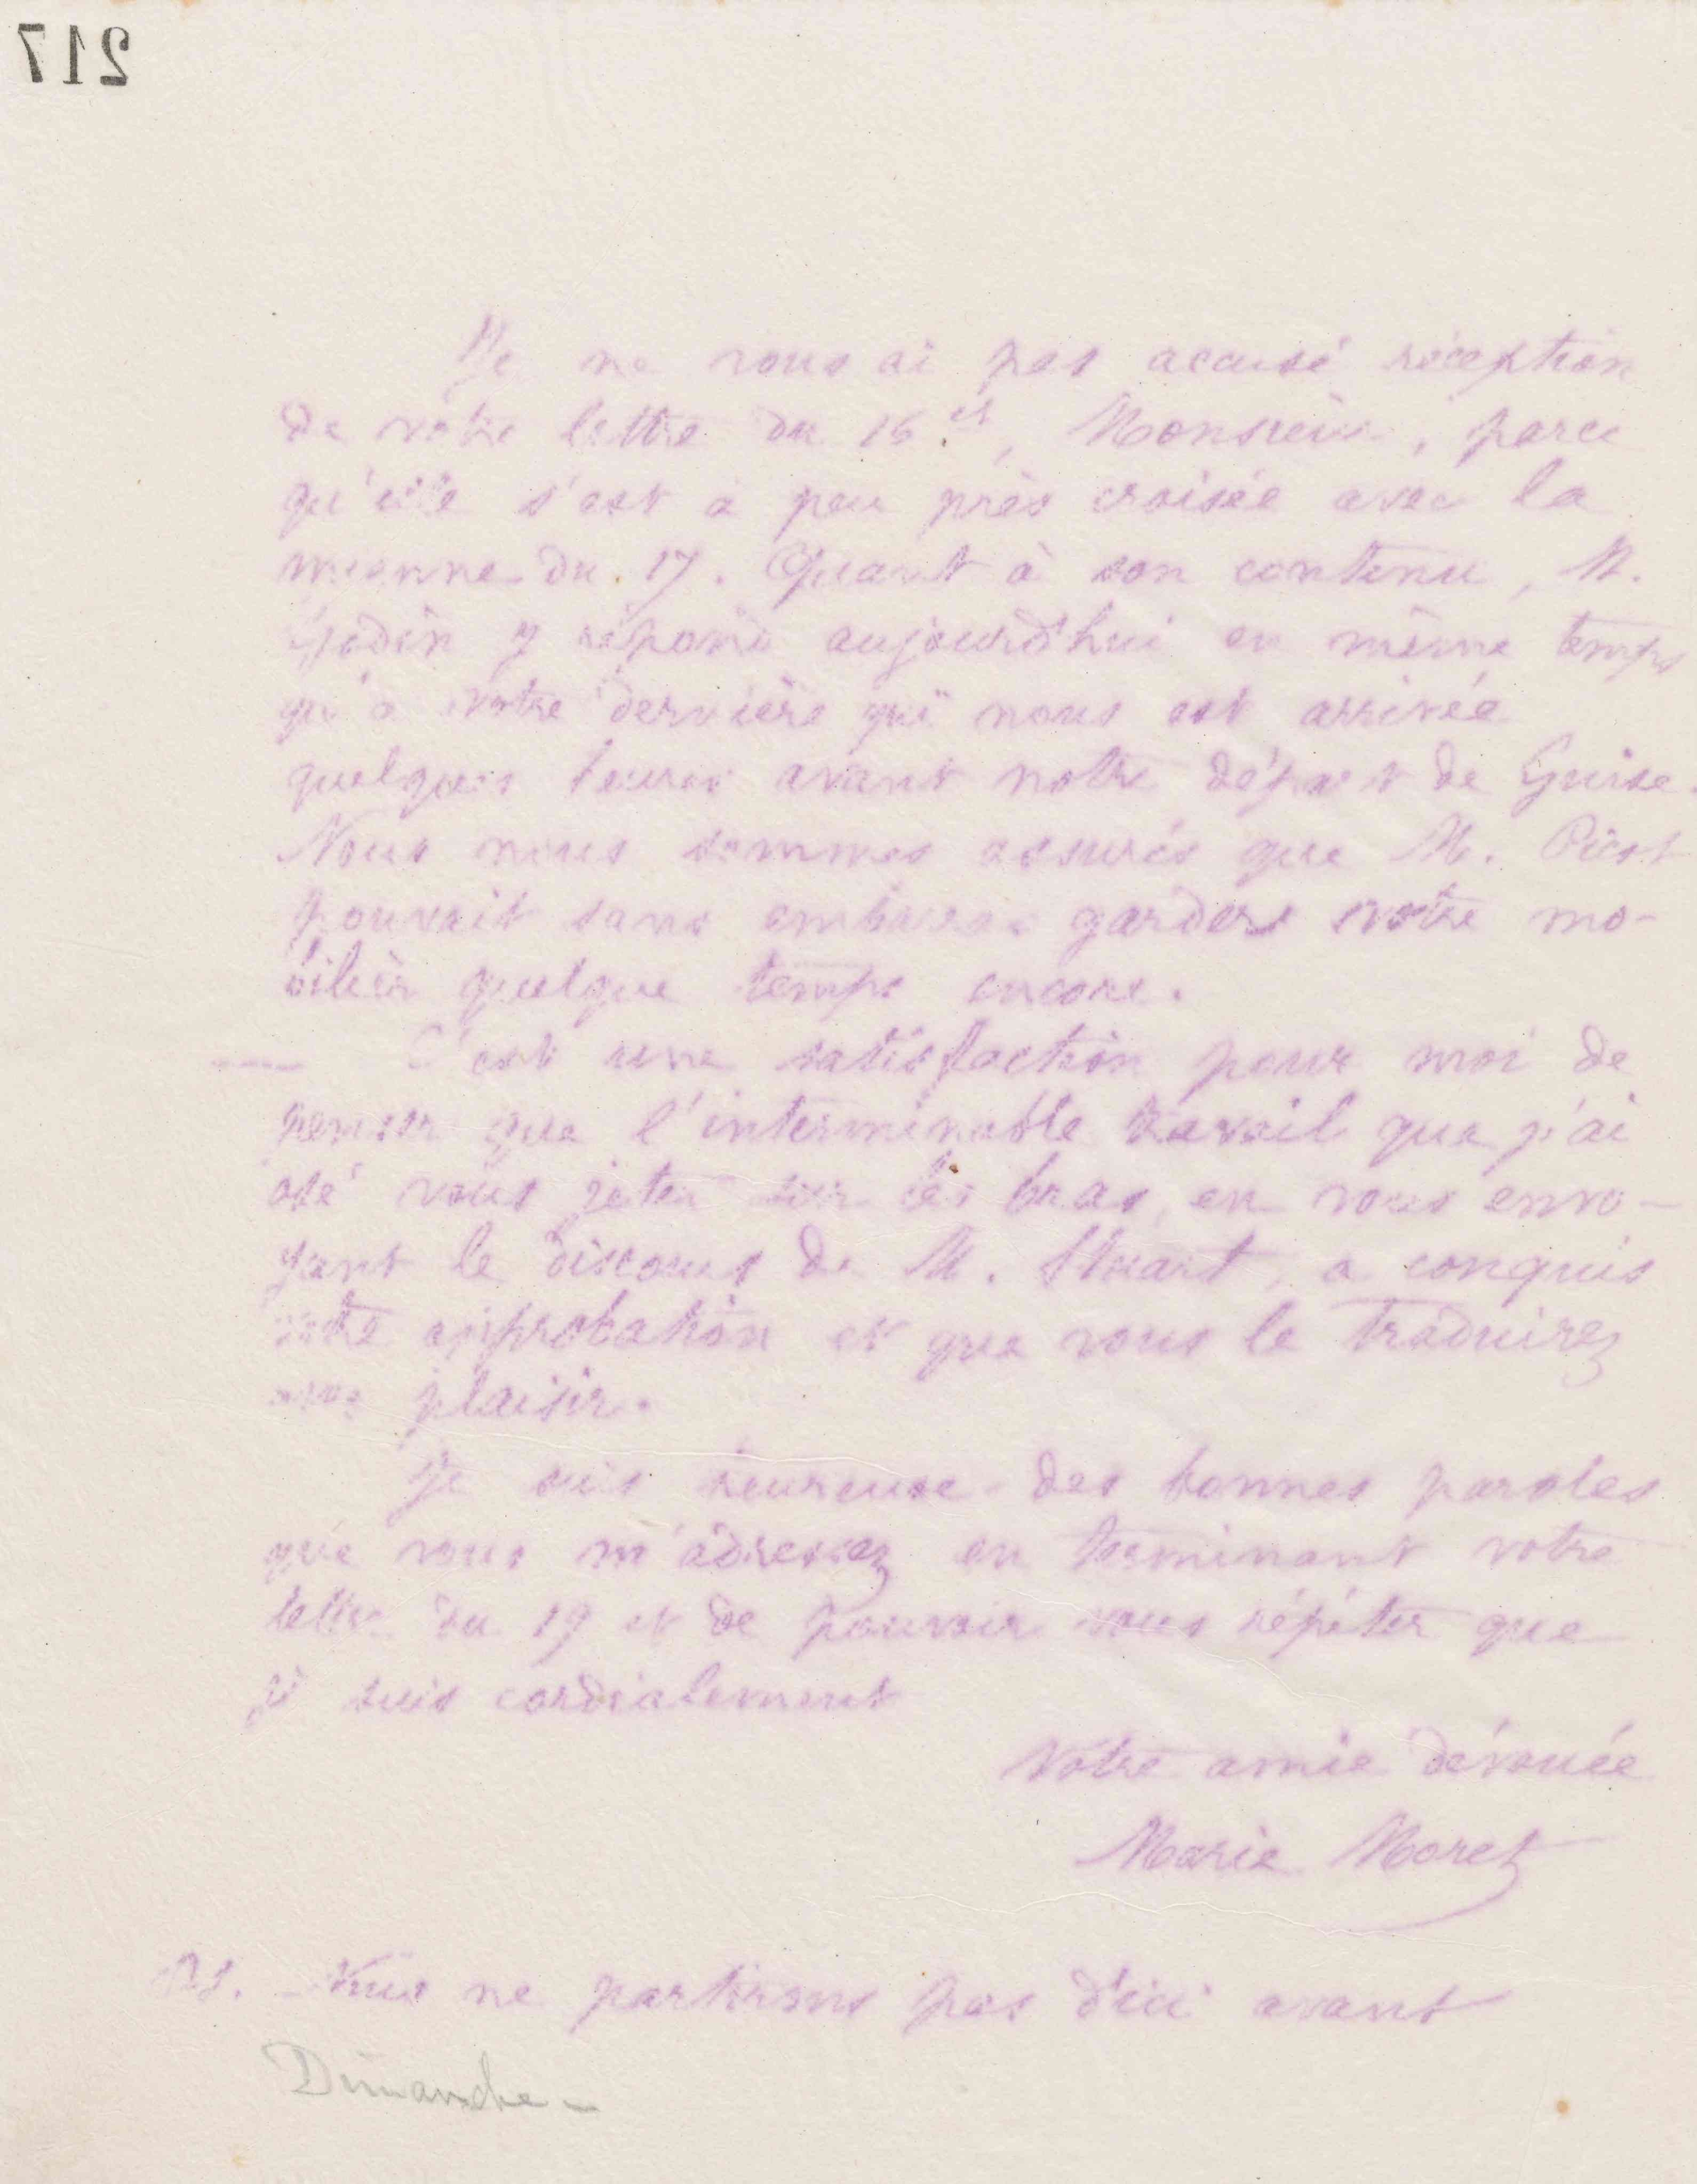 217
Je ne vous ai pas accusé réception
de votre lettre du 16 ct, Monsieur, parce
qu'elle s'est à peu près croisée avec la
mienne du 17. Quant à son contenu, M.
Godin y répond aujourd'hui en même temps
qu'à votre dernière qui nous est arrivée
quelques heures avant notre départ de Guise.
Nous nous sommes assurés que M. Picot
pouvait sans embarras garder votre mo-
bilier quelque temps encore.
— C'est une satisfaction pour moi de
penser que l'interminable travail que j'ai
osé vous jeter sur les bras, en vous envo-
yant le discours de M. Stuart, a conquis
votre approbation et que vous le traduirez
avec plaisir.
Je suis heureuse des bonnes paroles
que vous m'adressez en terminant votre
lettre du 19 et de pouvoir vous répéter que
je suis cordialement
Votre amie dévouée
Marie Moret
PS. - Nous ne partirons pas d'ici avant
Dimanche -